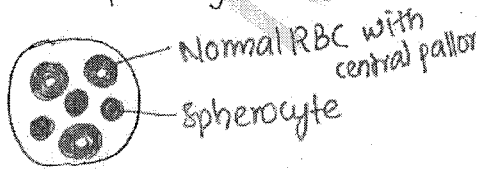 Normal RBC with
central pallor
Spherocyte